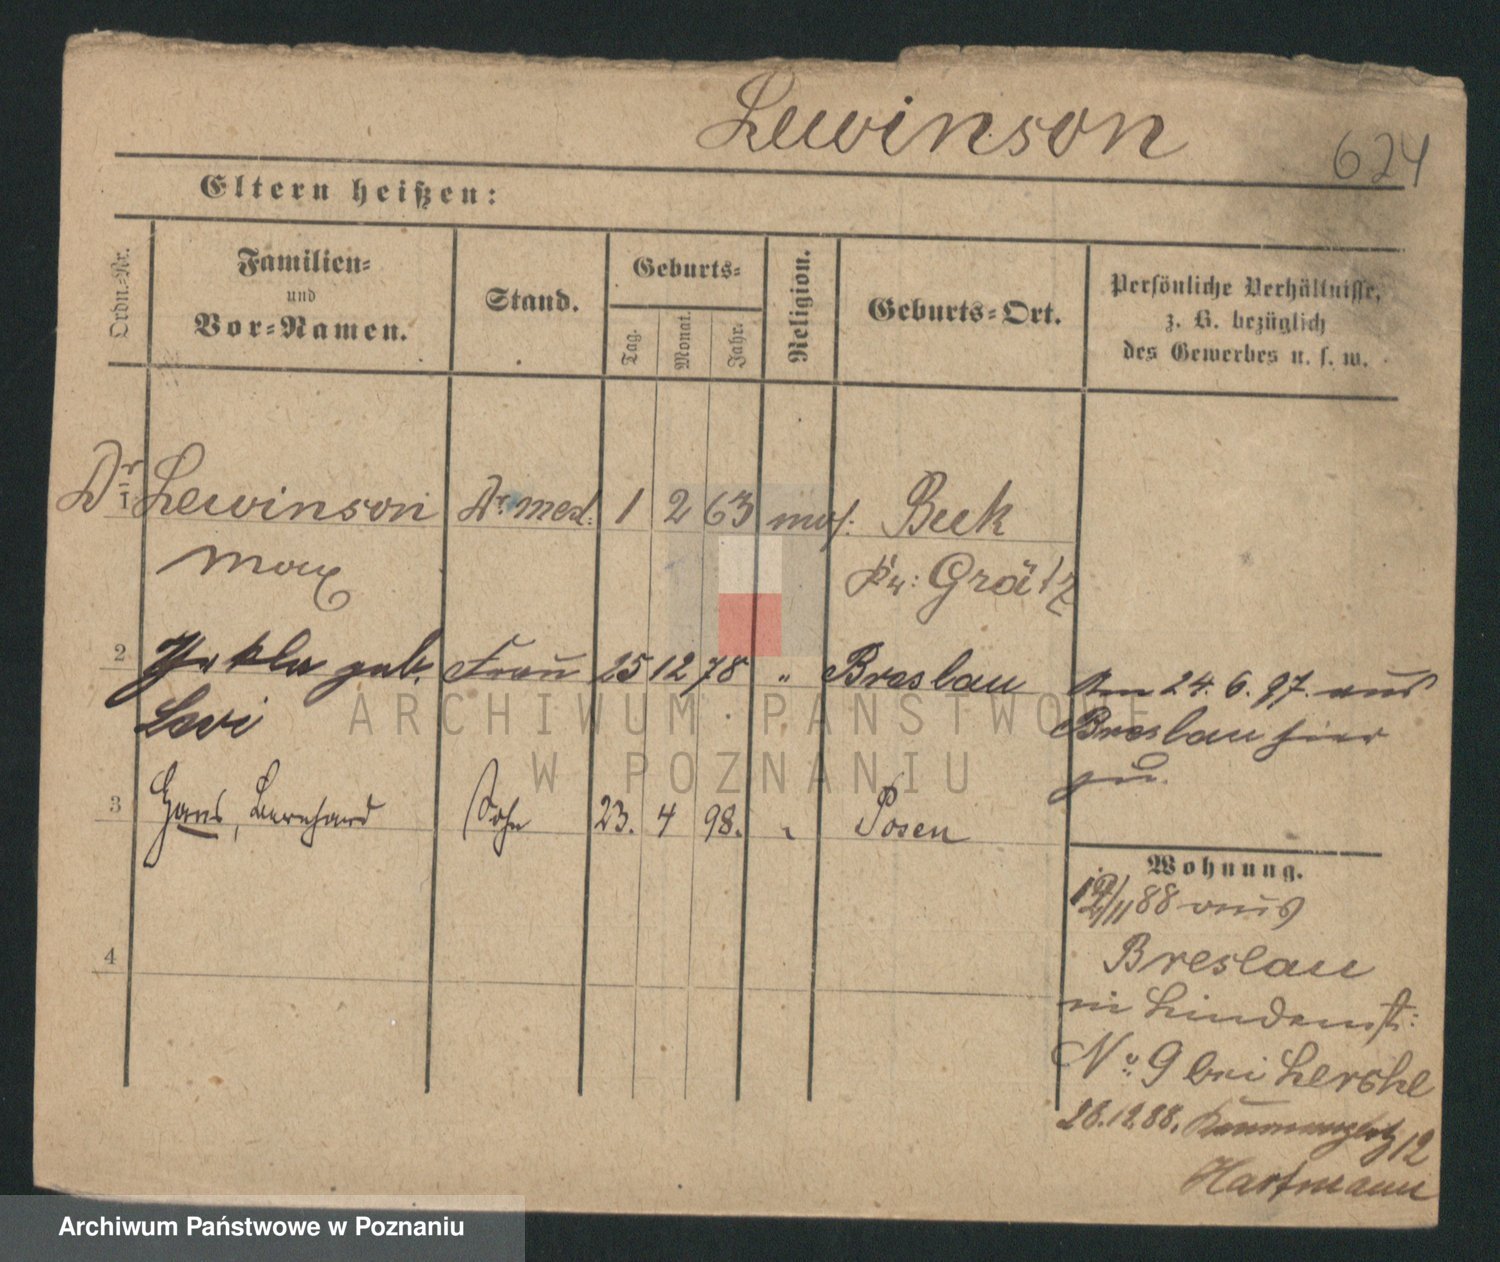 Lewinson
624
Eltern heißen:
Ordn.-Nr.
Familien-
und
Vor-Namen.
Stand.
Geburts-
Tag.
Monat.
Jahr.
Religion.
Geburts-Ort.
Persönliche Verhältnisse,
z. B. bezüglich
des Gewerbes u. s. w.
Dr 1 Lewinson Dr med: 1 2 63 mos: Buk
Max Kr: Grätz
2 geb. Frau 25 12 78 " Breslau Am 24. 6. 97. aus
Levi Breslau hier
zu.
3 Hans, Bernhard Sohn 23. 4 98. " Posen
Wohnung.
/11 88 aus
Breslau
4
in Lindenstr:
No: 9 bei
28.12.88. 12
Hartmann
ARCHIWUM PAŃSTWOWE
W POZNANIU
Archiwum Państwowe w Poznaniu